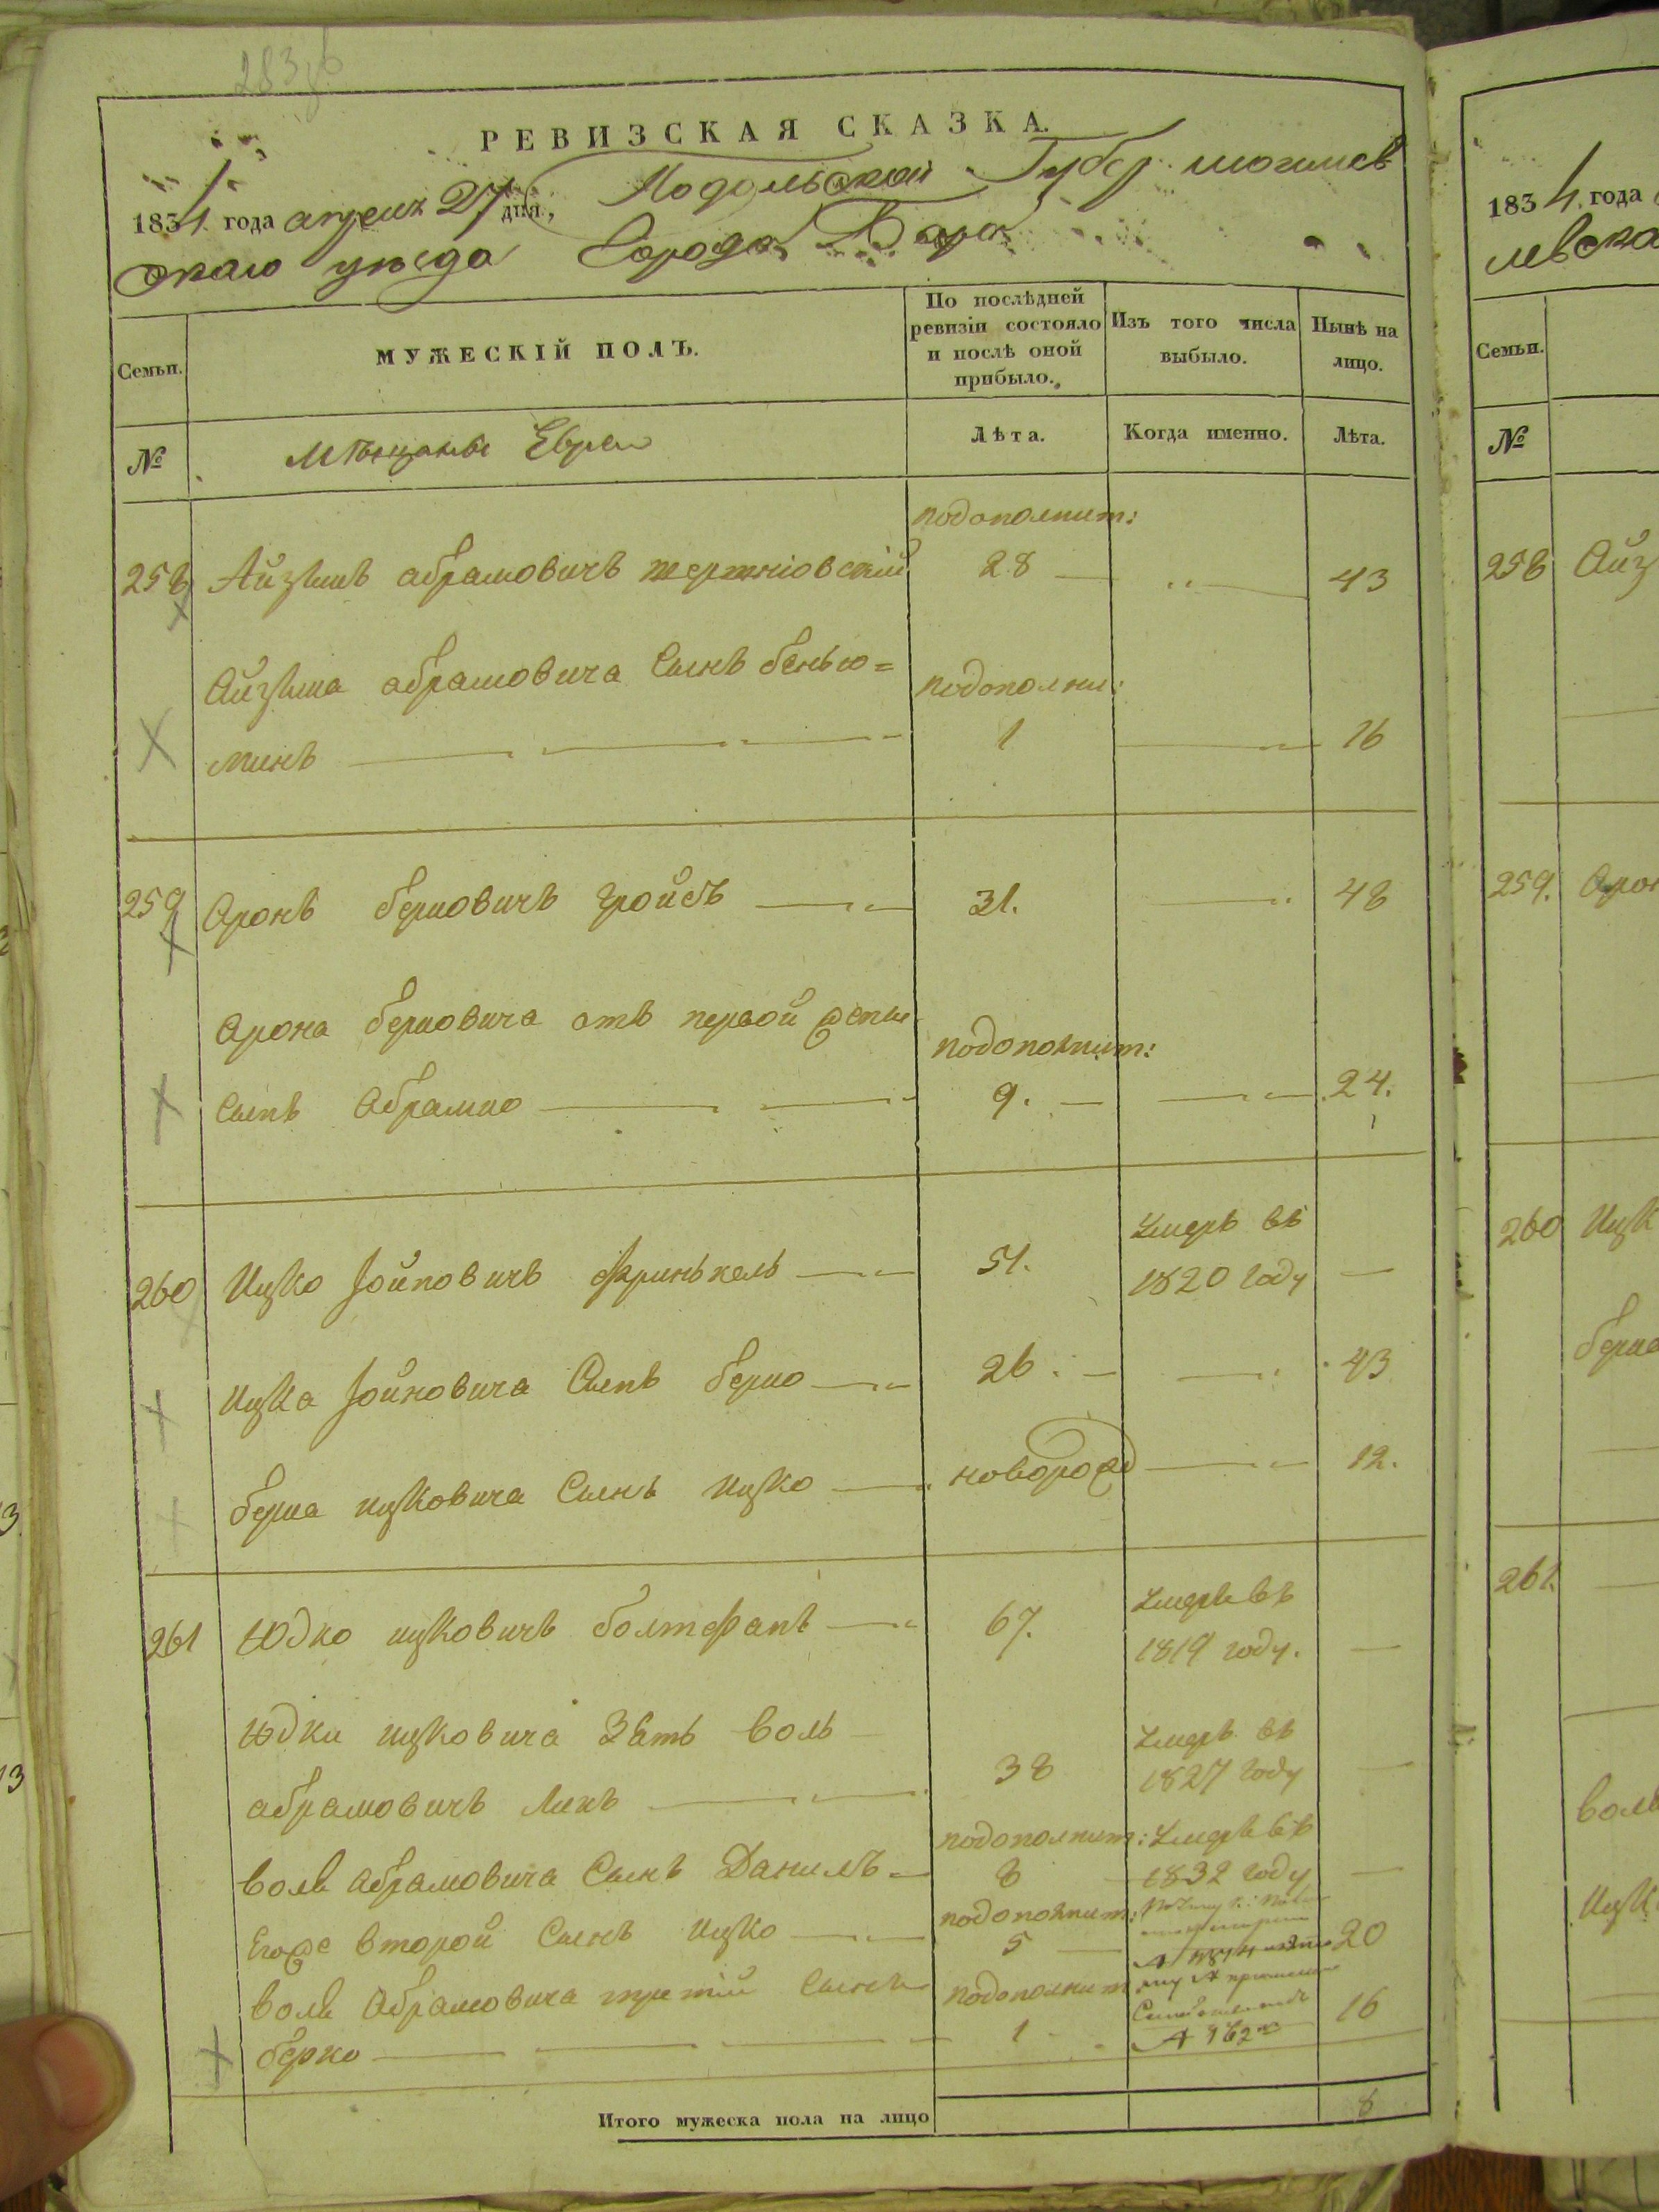 РЕВИЗСКАЯ СКАЗКА.
1834 года апреля 27 дня, Подольской Губер: могилев
скаго уезда Города Бара
Семьи. МУЖЕСКІЙ ПОЛЪ. По послѣдней ревизіи состояло и послѣ оной прибыло. Изъ того числа выбыло. Нынѣ на лицо.
№ Мѣщане Евреи Лѣта. Когда именно. Лѣта.
подополнит:
258 Айзыкъ абрамовичъ 28 43
Айзыка абрамовича Сынъ бенью= подополни:
минъ 1 16
259 Аронъ берковичъ гройсъ 31. 48
Арона берковича отъ первой жены подополнит:
Сынъ Абрамко 9. 24.
Умеръ въ
260 Ицко Іойновичъ Фринькель 51. 1820 году
Ицка Іойновича Сынъ берко 26. 43
берка ицковича Сынъ Ицко новорожд 12.
Умеръ въ
261 Юдко ицковичъ болтфанъ 67. 1819 году.
Юдки ицковича Зять воль Умеръ въ
абрамовичъ 38 1827 году
подополнит: Умеръ въ
воля Абрамовича Сынъ Данилъ 8 1832 году
подополнит:
Егоже второй Сынъ Ицко 5 20
воля Абрамовича третій Сынъ подополнит
берко 1 16
Итого мужеска пола на лицо 8
1834 года
левска
Семьи.
№
258 Айз
259. Арон
260 Ицк
берка
261.
воля
Ицк